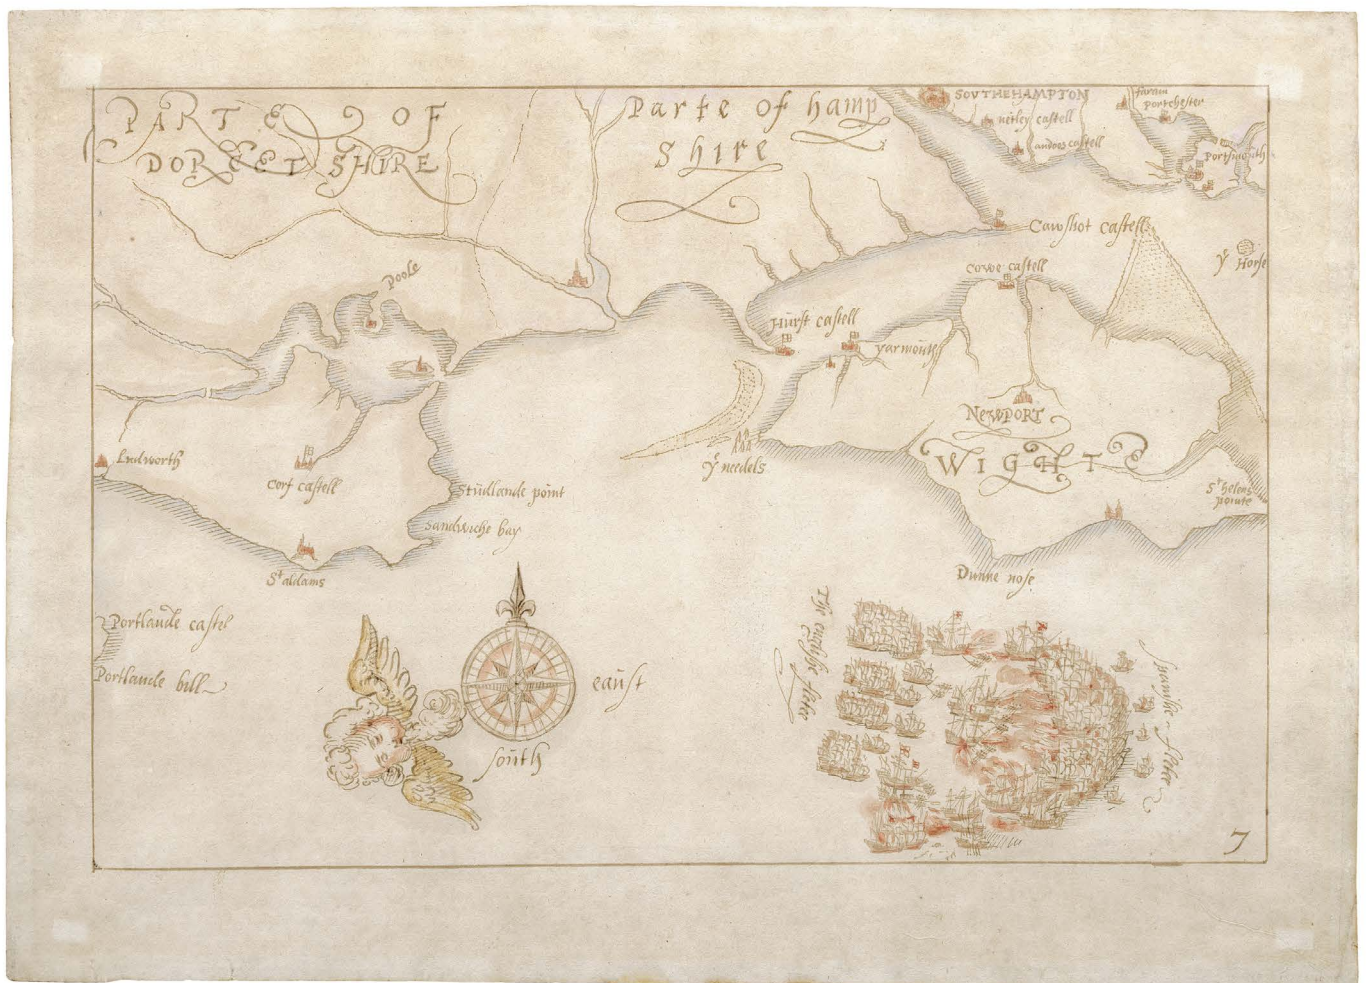 PARTE OF
DORCET SHIRE
Parte of hamp
shire
SOVTHEHAMPTON
netley castell
andors castell
faram
portchester
portsmouth
Cawshot castell
yͤ Horse
Cowe castell
Hurst castell
yarmouth
NEWPORT
WIGHTE
Sᵗ helens
pointe
yͤ needels
Dunne nose
poole
Ludworth
Corf castell
Studlande point
Sandwiche bay
Sᵗ aldams
Portlande castel
Portlande bill
eaust
south
The englishe fleete
Spanishe fleete
7